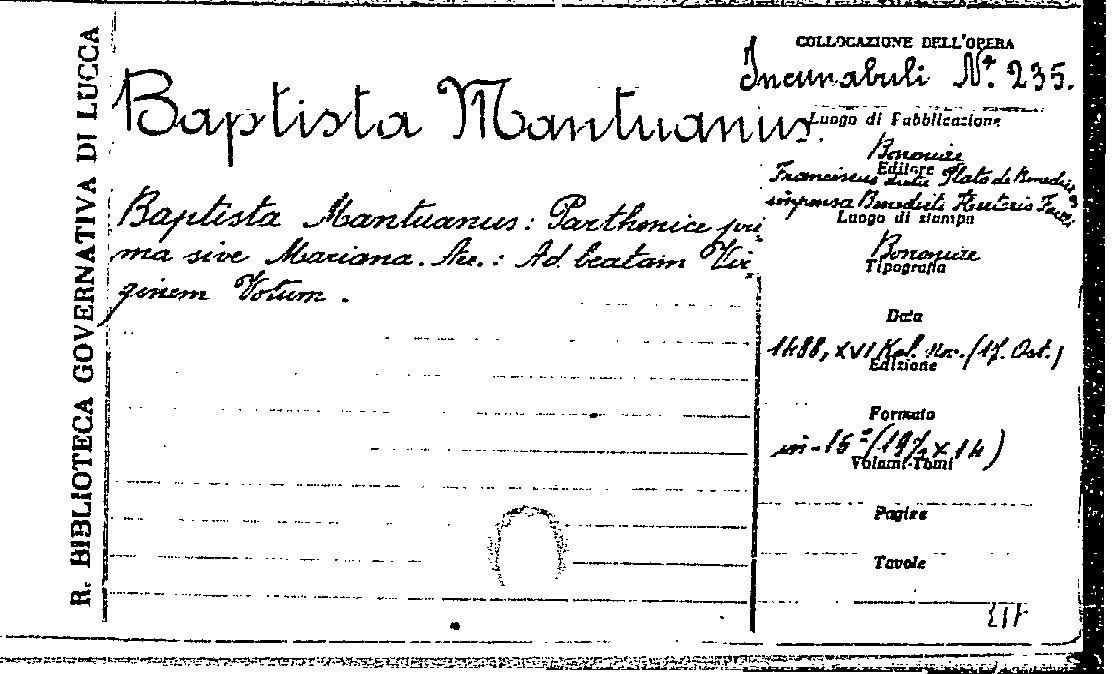 R. BIBLIOTECA GOVERNATIVA DI LUCCA
Baptista Mantuanus.
Baptista Mantuanus: Parthenice pri-
ma sive Mariana. Au.: Ad beatam Vir-
ginem Votum.
COLLOCAZIONE DELL'OPERA
Incunabuli N.º 235.
Luogo di Pubblicazione
Bononiae
Editore
Franciscus Plato de Benedictis
impensa Benedicti
Luogo di stampa
Bononiae
Tipografia
Data
1488, XVI Kal. Nov. (17. Ott.)
Edizione
Formato
in-15º (19½ x 14)
Volumi-Tomi
Pagine
Tavole